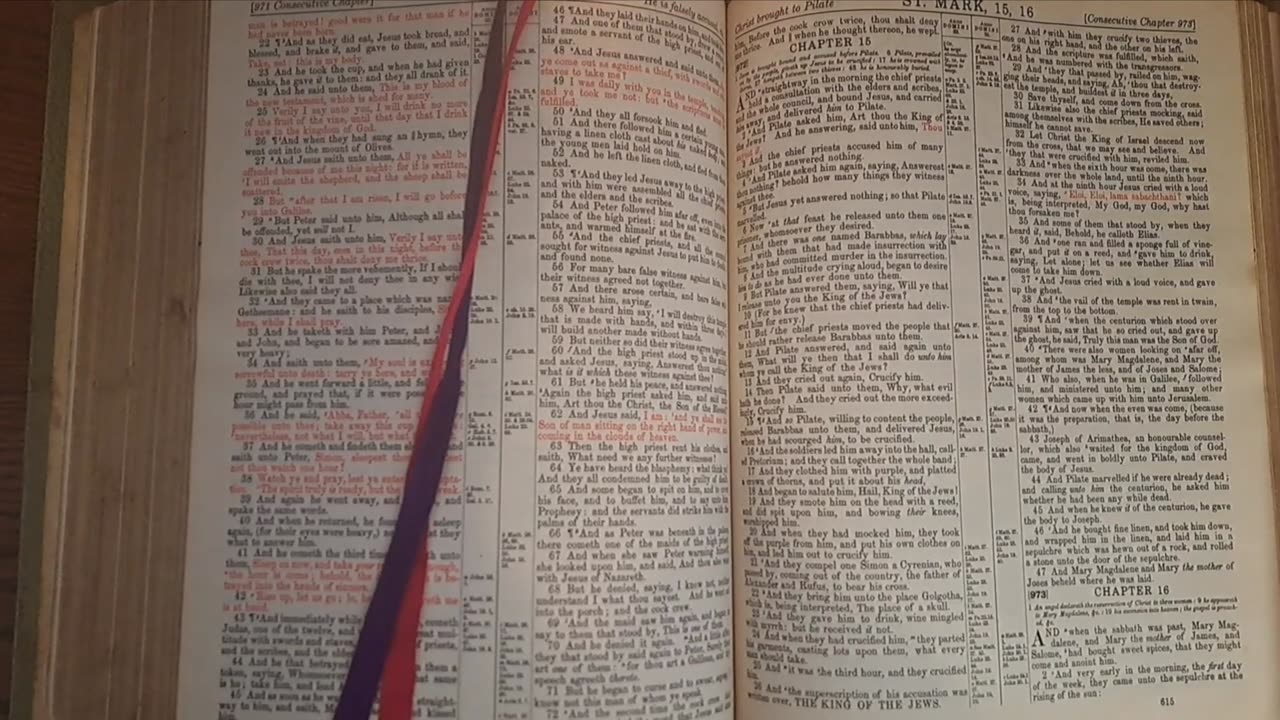 [971 Consecutive Chapter]
man is betrayed! good were it for that man if he
had never been born.
22 ¶ And as they did eat, Jesus took bread, and
blessed, and brake it, and gave to them, and said,
Take, eat: this is my body.
23 And he took the cup, and when he had given
thanks, he gave it to them: and they all drank of it.
24 And he said unto them, This is my blood of
the new testament, which is shed for many.
25 Verily I say unto you, I will drink no more
of the fruit of the vine, until that day that I drink
it new in the kingdom of God.
26 ¶ And when they had sung an hymn, they
went out into the mount of Olives.
27 And Jesus saith unto them, All ye shall be
offended because of me this night: for it is written,
I will smite the shepherd, and the sheep shall be
scattered.
28 But after that I am risen, I will go before
you into Galilee.
29 But Peter said unto him, Although all shall
be offended, yet will not I.
30 And Jesus saith unto him, Verily I say unto
thee, That this day, even in this night, before the
cock crow twice, thou shalt deny me thrice.
31 But he spake the more vehemently, If I should
die with thee, I will not deny thee in any wise.
Likewise also said they all.
32 And they came to a place which was
Gethsemane: and he saith to his disciples,
here, while I shall pray.
33 And he taketh with him Peter, and
and John, and began to be sore amazed, and
very heavy;
34 And saith unto them, My soul is
sorrowful unto death: tarry ye here, and
35 And he went forward a little, and
ground, and prayed that, if it were
hour might pass from him.
36 And he said, Abba, Father, all
possible unto thee; take away this cup
nevertheless, not what I will, but what
37 And he cometh and findeth them
saith unto Peter, Simon, sleepest
not thou watch one hour?
38 Watch ye and pray, lest ye enter
tion. The spirit truly is ready, but the
39 And again he went away, and
spake the same words.
40 And when he returned, he found asleep
again, (for their eyes were heavy,) they
what to answer him.
41 And he cometh the third time, unto
them, Sleep on now, and take your
the hour is come; behold, the
trayed into the hands of sinners.
42 Rise up, let us go; lo, me
is at hand.
43 ¶ And immediately while cometh
Judas, one of the twelve, and
titude with swords and staves, priests,
and the scribes, and the elders.
44 And he that betrayed them a
token, saying, Whomsoever same
is he; take him, and lead
45 And as soon as he was straight-
way to him, and saith, kissed
He is falsely accused
46 ¶ And they laid their hands on him, and
47 And one of them that stood by, drew
and smote a servant of the high priest, and
his ear.
48 And Jesus answered and said unto
ye come out as against a thief, with swords and
staves to take me?
49 I was daily with you in the temple,
and ye took me not: but the scriptures
fulfilled.
50 And they all forsook him and fled.
51 And there followed him a certain young
having a linen cloth cast about his naked
the young men laid hold on him.
52 And he left the linen cloth, and fled from
naked.
53 ¶ And they led Jesus away to the
and with him were assembled all the chief
and the elders and the scribes.
54 And Peter followed him afar off, even into
palace of the high priest: and he sat with the
ants, and warmed himself at the fire.
55 And the chief priests, and all the
sought for witness against Jesus to put him to
and found none.
56 For many bare false witness against him,
their witness agreed not together.
57 And there arose certain, and bare false
ness against him, saying,
58 We heard him say, I will destroy this
that is made with hands, and within three
will build another made without hands.
59 But neither so did their witness agree together.
60 And the high priest stood up in the
and asked Jesus, saying, Answerest thou nothing?
what is it which these witness against thee?
61 But he held his peace, and answered nothing.
Again the high priest asked him, and said unto
him, Art thou the Christ, the Son of the Blessed?
62 And Jesus said, I am: and ye shall see the
Son of man sitting on the right hand of power, and
coming in the clouds of heaven.
63 Then the high priest rent his clothes, and
saith, What need we any further witnesses?
64 Ye have heard the blasphemy: what think ye?
And they all condemned him to be guilty of death.
65 And some began to spit on him, and to cover
his face, and to buffet him, and to say unto him,
Prophesy: and the servants did strike him with the
palms of their hands.
66 ¶ And as Peter was beneath in the palace,
there cometh one of the maids of the high priest:
67 And when she saw Peter warming himself,
she looked upon him, and said, And thou also wast
with Jesus of Nazareth.
68 But he denied, saying, I know not, neither
understand I what thou sayest. And he went out
into the porch; and the cock crew.
69 And the maid saw him again, and began to
say to them that stood by, This is one of them.
70 And he denied it again. And a little after,
they that stood by said again to Peter, Surely thou
art one of them: for thou art a Galilean, and thy
speech agreeth thereto.
71 But he began to curse and to swear, saying, I
know not this man of whom ye speak.
72 And the second time the cock crew.
Christ brought to Pilate
ST. MARK, 15, 16
[Consecutive Chapter 973]
him, Before the cock crow twice, thou shalt deny
me thrice. And when he thought thereon, he wept.
CHAPTER 15
AND straightway in the morning the chief priests
held a consultation with the elders and scribes,
and the whole council, and bound Jesus, and carried
him away, and delivered him to Pilate.
2 And Pilate asked him, Art thou the King of
the Jews? And he answering, said unto him, Thou
sayest it.
3 And the chief priests accused him of many
things: but he answered nothing.
4 And Pilate asked him again, saying, Answerest
thou nothing? behold how many things they witness
against thee.
5 But Jesus yet answered nothing; so that Pilate
marvelled.
6 Now at that feast he released unto them one
prisoner, whomsoever they desired.
7 And there was one named Barabbas, which lay
bound with them that had made insurrection with
him, who had committed murder in the insurrection.
8 And the multitude crying aloud, began to desire
him to do as he had ever done unto them.
9 But Pilate answered them, saying, Will ye that
I release unto you the King of the Jews?
10 (For he knew that the chief priests had deliv-
ered him for envy.)
11 But the chief priests moved the people that
he should rather release Barabbas unto them.
12 And Pilate answered, and said again unto
them, What will ye then that I shall do unto him
whom ye call the King of the Jews?
13 And they cried out again, Crucify him.
14 Then Pilate said unto them, Why, what evil
hath he done? And they cried out the more exceed-
ingly, Crucify him.
15 ¶ And so Pilate, willing to content the people,
released Barabbas unto them, and delivered Jesus,
when he had scourged him, to be crucified.
16 And the soldiers led him away into the hall, call-
ed Pretorium; and they call together the whole band.
17 And they clothed him with purple, and platted
a crown of thorns, and put it about his head,
18 And began to salute him, Hail, King of the Jews!
19 And they smote him on the head with a reed,
and did spit upon him, and bowing their knees,
worshipped him.
20 And when they had mocked him, they took
off the purple from him, and put his own clothes on
him, and led him out to crucify him.
21 And they compel one Simon a Cyrenian, who
passed by, coming out of the country, the father of
Alexander and Rufus, to bear his cross.
22 And they bring him unto the place Golgotha,
which is, being interpreted, The place of a skull.
23 And they gave him to drink, wine mingled
with myrrh: but he received it not.
24 And when they had crucified him, they parted
his garments, casting lots upon them, what every
man should take.
25 And it was the third hour, and they crucified
him.
26 And the superscription of his accusation was
written over, THE KING OF THE JEWS.
27 And with him they crucify two thieves, the
one on his right hand, and the other on his left.
28 And the scripture was fulfilled, which saith,
And he was numbered with the transgressors.
29 And they that passed by, railed on him, wag-
ging their heads, and saying, Ah, thou that destroy-
est the temple, and buildest it in three days,
30 Save thyself, and come down from the cross.
31 Likewise also the chief priests mocking, said
among themselves with the scribes, He saved others;
himself he cannot save.
32 Let Christ the King of Israel descend now
from the cross, that we may see and believe. And
they that were crucified with him, reviled him.
33 And when the sixth hour was come, there was
darkness over the whole land, until the ninth hour.
34 And at the ninth hour Jesus cried with a loud
voice, saying, Eloi, Eloi, lama sabachthani? which
is, being interpreted, My God, my God, why hast
thou forsaken me?
35 And some of them that stood by, when they
heard it, said, Behold, he calleth Elias.
36 And one ran and filled a sponge full of vine-
gar, and put it on a reed, and gave him to drink,
saying, Let alone; let us see whether Elias will
come to take him down.
37 And Jesus cried with a loud voice, and gave
up the ghost.
38 And the vail of the temple was rent in twain,
from the top to the bottom.
39 ¶ And when the centurion which stood over
against him, saw that he so cried out, and gave up
the ghost, he said, Truly this man was the Son of God.
40 There were also women looking on afar off,
among whom was Mary Magdalene, and Mary the
mother of James the less, and of Joses and Salome;
41 Who also, when he was in Galilee, followed
him, and ministered unto him; and many other
women which came up with him unto Jerusalem.
42 ¶ And now when the even was come, (because
it was the preparation, that is, the day before the
sabbath,)
43 Joseph of Arimathea, an honourable counsel-
lor, which also waited for the kingdom of God,
came, and went in boldly unto Pilate, and craved
the body of Jesus.
44 And Pilate marvelled if he were already dead;
and calling unto him the centurion, he asked him
whether he had been any while dead.
45 And when he knew it of the centurion, he gave
the body to Joseph.
46 And he bought fine linen, and took him down,
and wrapped him in the linen, and laid him in a
sepulchre which was hewn out of a rock, and rolled
a stone unto the door of the sepulchre.
47 And Mary Magdalene and Mary the mother of
Joses beheld where he was laid.
[973] CHAPTER 16
AND when the sabbath was past, Mary Mag-
dalene, and Mary the mother of James, and
Salome, had bought sweet spices, that they might
come and anoint him.
2 And very early in the morning, the first day
of the week, they came unto the sepulchre at the
rising of the sun:
615